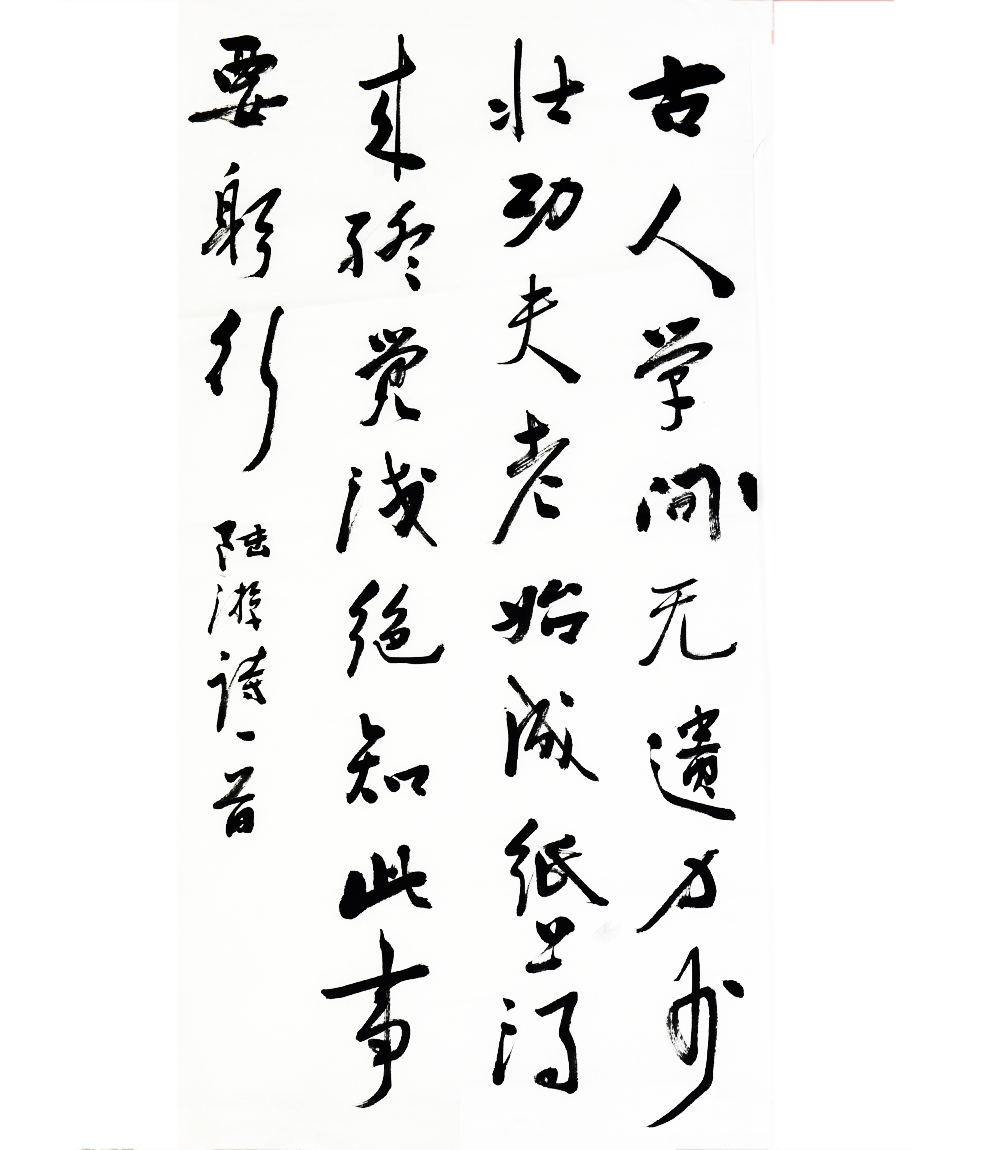 古人学问无遗力少
壮功夫老始成纸上得
来终觉浅绝知此事
要躬行 陆游诗一首